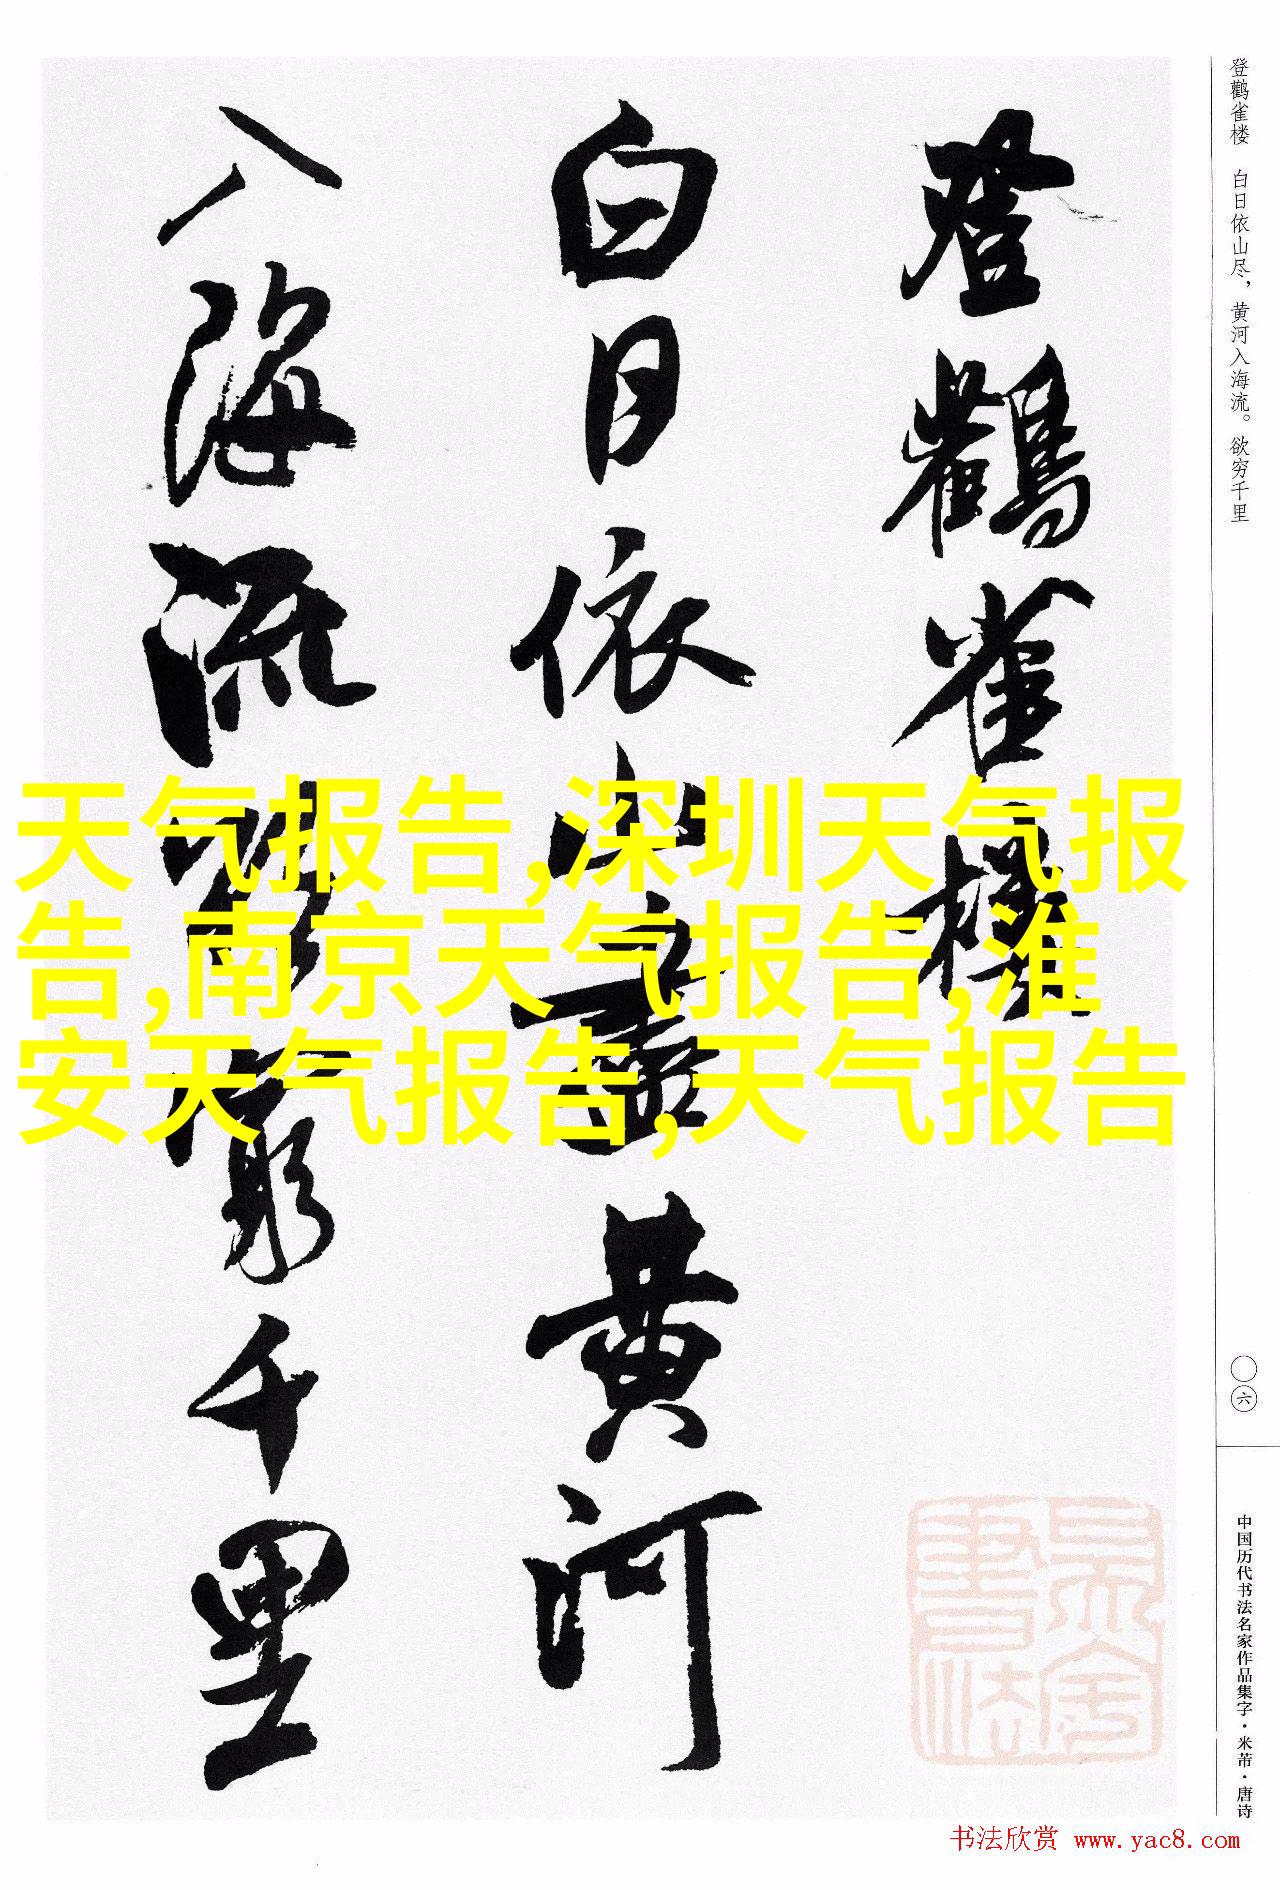 登鹳雀楼 白日依山尽，黄河入海流。欲穷千里
登鸛雀樓
白日依山盡黄河
入海流欲窮千里
天气报告,深圳天气报
告,南京天气报告,淮
安天气报告,天气报告
〇六
中国历代书法名家作品集字·米芾·唐诗
书法欣赏 www.yac8.com